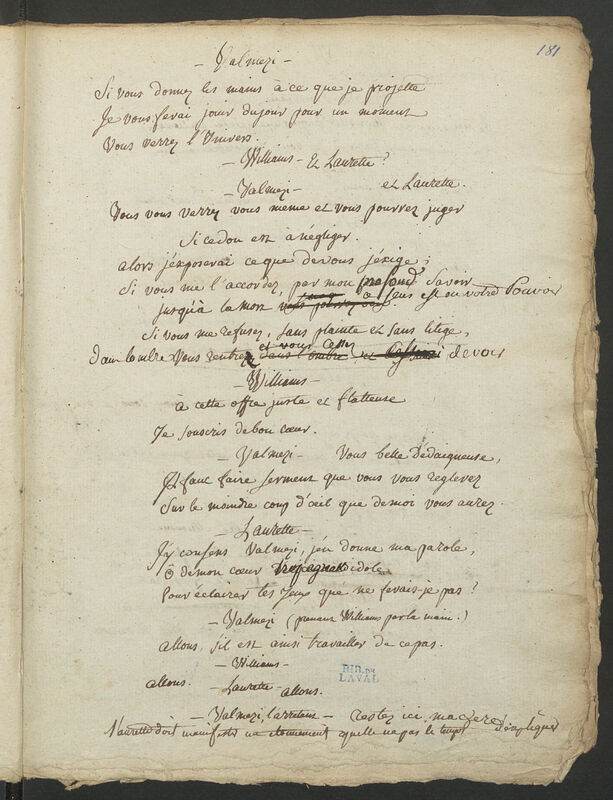 181
— Valmezi —
Si vous donnez les mains à ce que je projette
Je vous ferai jouir du jour pour un moment
Vous verrez l'Univers.
— Williams — Et Laurette?
— Valmezi — et Laurette.
Vous vous verrez vous meme et vous pourrez juger
Si ce don est à négliger.
alors j'exposerai ce que de vous j'exige;
Si vous me l'accordez, par mon profond Savoir
jusqu'à la mort vos sens est en votre Pouvoir
Si vous me refusez, sans plainte et sans litige,
Dans l'ombre vous rentrez et vous cessez de voir
— Williams —
à cette offre juste et flatteuse
Je souscris de bon cœur.
— Valmezi — Vous belle dédaigneuse,
Il faut faire serment que vous vous reglerez
Sur le moindre coup d'œil que de moi vous aurez.
— Laurette —
J'y consens Valmezi, j'en donne ma parole,
O de mon cœur idole
Pour éclairer tes yeux que ne ferais-je pas?
— Valmezi (prenant Williams par la main.)
allons, s'il est ainsi travailler de ce pas.
— Williams —
allons. — Laurette — allons.
BIB. DE
LAVAL
— Valmezi, l'arretant — restez ici, ma chere
Laurette doit manifester un étonnement qu'elle n'a pas le temps d'expliquer